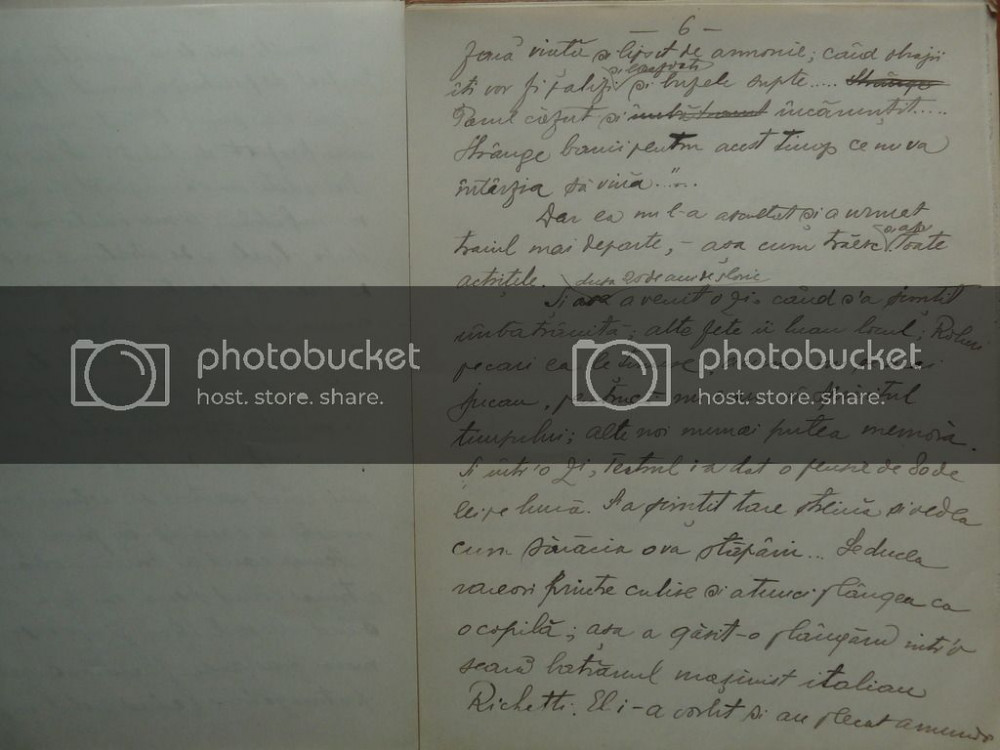 - 6 -
fără viață și lipsit de armonie; când obrajii
îți vor fi palizi și buzele supte..... Strânge
Părul căzut și încărunțit.....
Strânge banii pentru acest timp ce nu va
întârzia să vină..."...
Dar ea nu l-a ascultat și a urmat
traiul mai departe, - așa cum trăesc toate
actrițele.
după 20 de ani de glorie
Și așa a venit o zi, când s'a simțit
îmbătrânită; alte fete îi luau locul; Roluri
pe cari ea le
jucau, spiritul
timpului; alte noi numai putea memora.
Și intr'o zi, Teatrul i-a dat o pensie de 80 de
lei pe lună. S'a simțit tare streină și vedea
cum sărăcia o va stăpâni... Se ducea
rareori printre culise și atunci plângea ca
o copilă; așa a găsit-o plângând intr'o
seară bătrânul mașinist italian
Richetti. El i-a vorbit și au plecat amândoi
photobucket
host. store. share.
photobucket
host. store. share.